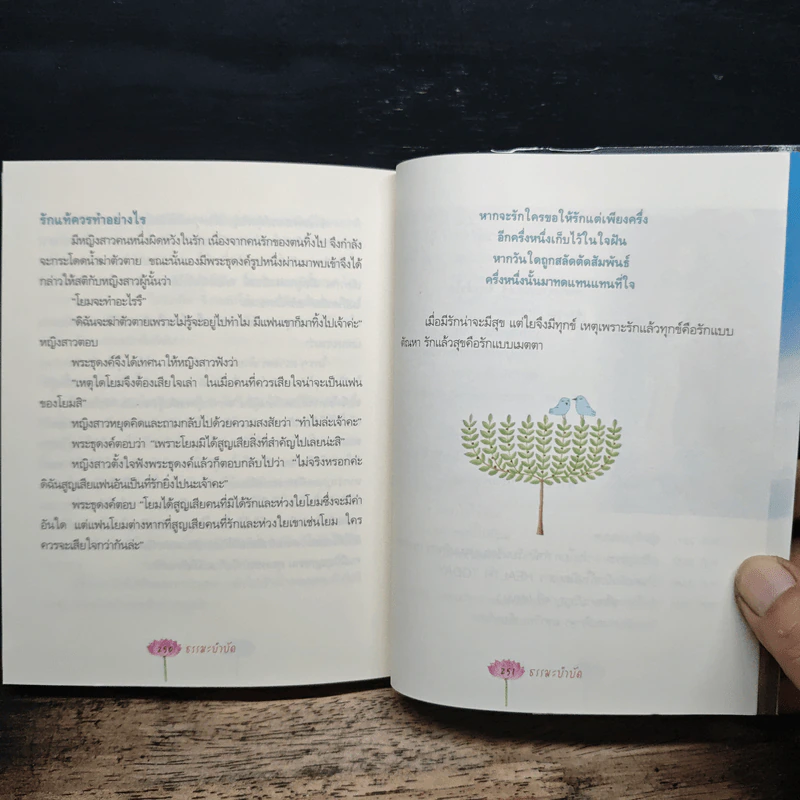 รักแท้ควรทำอย่างไร
มีหญิงสาวคนหนึ่งผิดหวังในรัก เนื่องจากคนรักของตนทิ้งไป จึงกำลัง
จะกระโดดน้ำฆ่าตัวตาย ขณะนั้นเองมีพระธุดงค์รูปหนึ่งผ่านมาพบเข้าจึงได้
กล่าวให้สติกับหญิงสาวผู้นั้นว่า
"โยมจะทำอะไรรึ"
"ดิฉันจะฆ่าตัวตายเพราะไม่รู้จะอยู่ไปทำไม มีแฟนเขาก็มาทิ้งไปเจ้าค่ะ"
หญิงสาวตอบ
พระธุดงค์จึงได้เทศนาให้หญิงสาวฟังว่า
"เหตุใดโยมจึงต้องเสียใจเล่า ในเมื่อคนที่ควรเสียใจน่าจะเป็นแฟน
ของโยมสิ"
หญิงสาวหยุดคิดและถามกลับไปด้วยความสงสัยว่า "ทำไมล่ะเจ้าคะ"
พระธุดงค์ตอบว่า "เพราะโยมมิได้สูญเสียสิ่งที่สำคัญไปเลยน่ะสิ"
หญิงสาวตั้งใจฟังพระธุดงค์แล้วก็ตอบกลับไปว่า "ไม่จริงหรอกค่ะ
ดิฉันสูญเสียแฟนอันเป็นที่รักยิ่งไปนะเจ้าคะ"
พระธุดงค์ตอบ "โยมได้สูญเสียคนที่มิได้รักและห่วงใยโยมซึ่งจะมีค่า
อันใด แต่แฟนโยมต่างหากที่สูญเสียคนที่รักและห่วงใยเขาเช่นโยม ใคร
ควรจะเสียใจกว่ากันล่ะ"
250 ธรรมะบำบัด
หากจะรักใครขอให้รักแต่เพียงครึ่ง
อีกครึ่งหนึ่งเก็บไว้ในใจฝัน
หากวันใดถูกสลัดตัดสัมพันธ์
ครึ่งหนึ่งนั้นมาทดแทนแทนที่ใจ
เมื่อมีรักน่าจะมีสุข แต่ใยจึงมีทุกข์ เหตุเพราะรักแล้วทุกข์คือรักแบบ
ตัณหา รักแล้วสุขคือรักแบบเมตตา
251 ธรรมะบำบัด